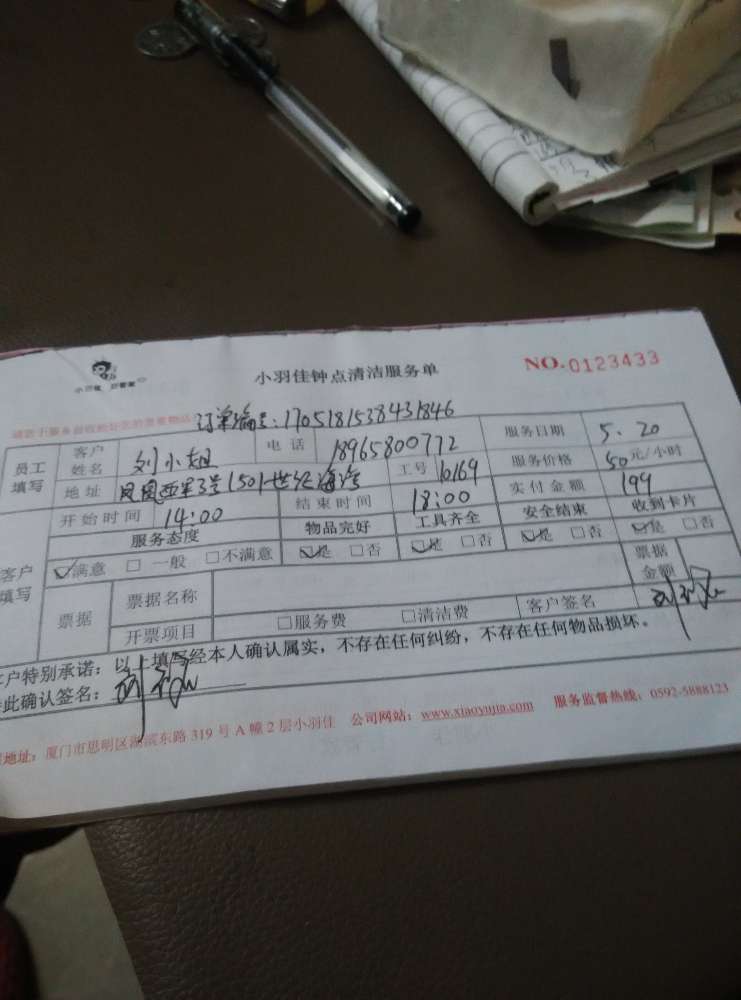 小羽佳钟点清洁服务单
NO.0123433
订单编号：1705181538431846
员工填写 客户姓名 刘小姐 电话 18965800772 服务日期 5.20
地址 凤凰 3号1501 世纪海湾 工号 10169 服务价格 50元/小时
开始时间 14:00 结束时间 18:00 实付金额 199
客户填写 服务态度 物品完好 工具齐全 安全结束 收到卡片
☑满意 □一般 □不满意 ☑是 □否 ☑是 □否 ☑是 □否 ☑是 □否
票据 票据名称 票据金额
开票项目 □服务费 □清洁费 客户签名
客户特别承诺：以上填写经本人确认属实，不存在任何纠纷，不存在任何物品损坏。
此确认签名：
地址：厦门市思明区湖滨东路319号A幢2层小羽佳 公司网站：www.xiaoyujia.com 服务监督热线：0592-5888123